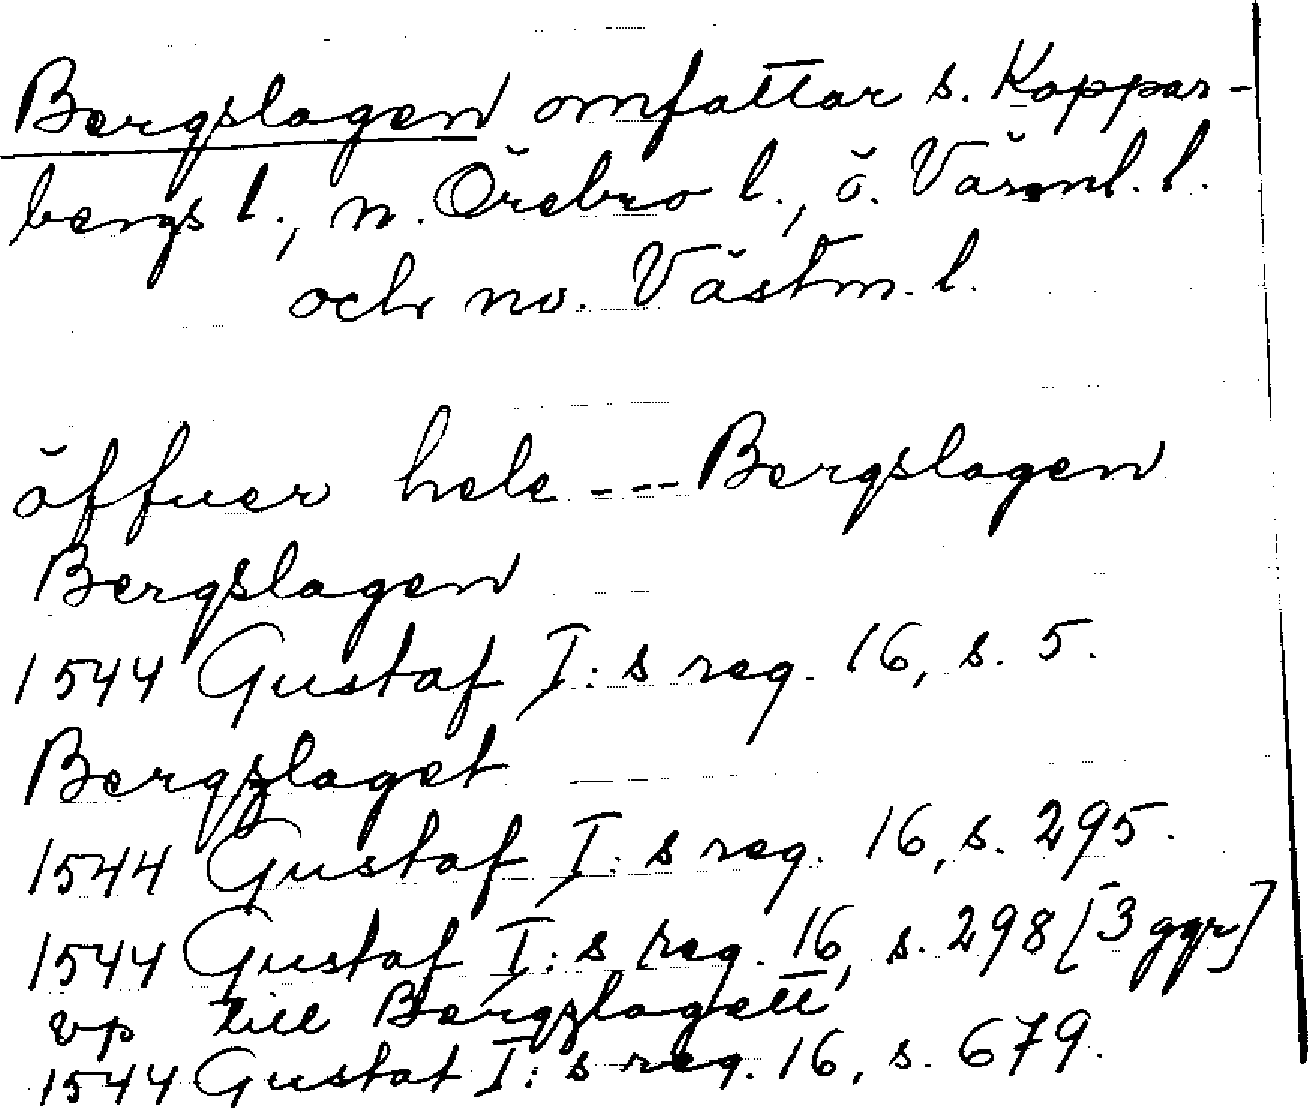 Bergslagen omfattar s. Koppar-
bergs l., n. Örebro l., ö. Värml. l.
och nv. Västm. l.
öffuer hele --- Bergslagen
Bergslagen
1544 Gustaf I:s reg. 16, s. 5.
Bergzlaget
1544 Gustaf I:s reg. 16, s. 295.
1544 Gustaf I:s reg. 16, s. 298 [3 ggr]
vp till Bergzlagett
1544 Gustaf I:s reg. 16, s. 679.